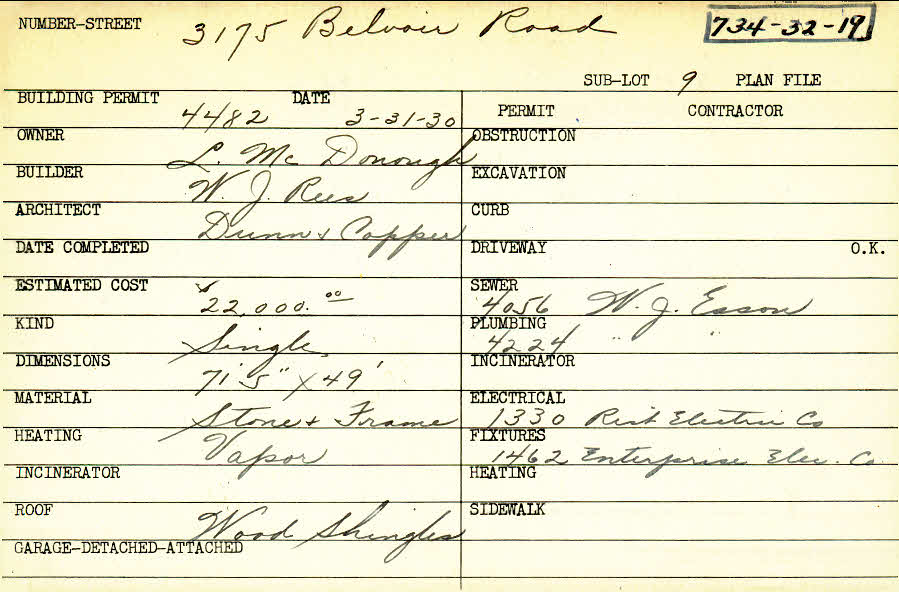 NUMBER-STREET 3175 Belvoir Road 734-32-19
SUB-LOT 9 PLAN FILE
BUILDING PERMIT 4482 DATE 3-31-30
PERMIT CONTRACTOR
OWNER L. Mc Donough
OBSTRUCTION
BUILDER W. J. Rees
EXCAVATION
ARCHITECT Dunn & Copper
CURB
DATE COMPLETED
DRIVEWAY O.K.
ESTIMATED COST $22,000.00
SEWER 4056 W. J. Esson
KIND Single
PLUMBING 4224 " "
DIMENSIONS 71'5" x 49'
INCINERATOR
MATERIAL Stone & Frame
ELECTRICAL 1330 Electric Co
HEATING Vapor
FIXTURES 1462 Enterprise Elec. Co.
INCINERATOR
HEATING
ROOF Wood Shingles
SIDEWALK
GARAGE-DETACHED-ATTACHED